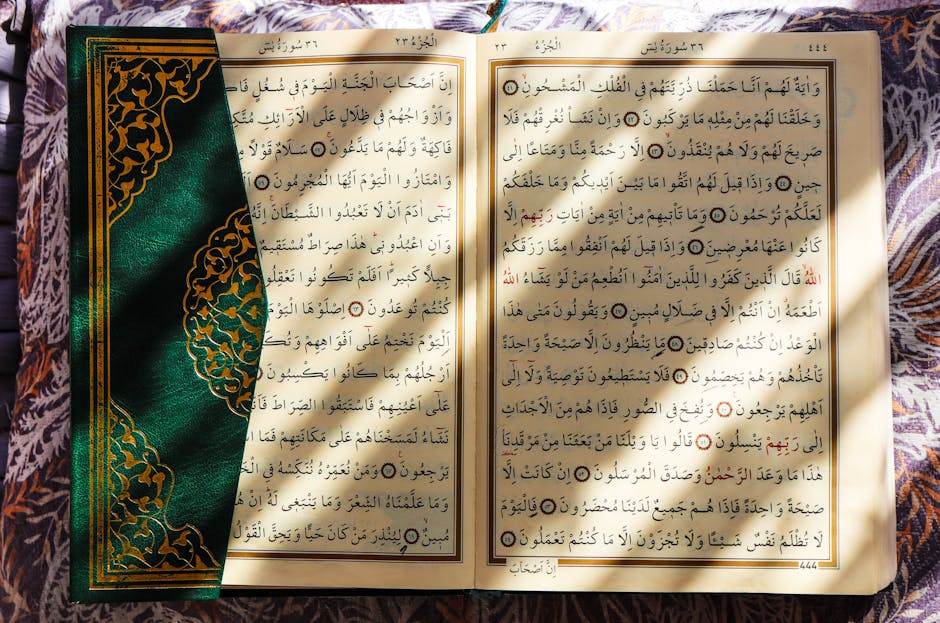 ٤٤٤ سُورَةُ يٰسٓ ٣٦ اَلْجُزْءُ ٢٣
وَاٰيَةٌ لَهُمْ اَنَّا حَمَلْنَا ذُرِّيَّتَهُمْ فِي الْفُلْكِ الْمَشْحُونِۙ ٤١
وَخَلَقْنَا لَهُمْ مِنْ مِثْلِه۪ مَا يَرْكَبُونَ ٤٢ وَاِنْ نَشَأْ نُغْرِقْهُمْ فَلَا
صَر۪يخَ لَهُمْ وَلَا هُمْ يُنْقَذُونَۙ ٤٣ اِلَّا رَحْمَةً مِنَّا وَمَتَاعًا اِلٰى
ح۪ينٍ ٤٤ وَاِذَا ق۪يلَ لَهُمُ اتَّقُوا مَا بَيْنَ اَيْد۪يكُمْ وَمَا خَلْفَكُمْ
لَعَلَّكُمْ تُرْحَمُونَ ٤٥ وَمَا تَأْت۪يهِمْ مِنْ اٰيَةٍ مِنْ اٰيَاتِ رَبِّهِمْ اِلَّا
كَانُوا عَنْهَا مُعْرِض۪ينَ ٤٦ وَاِذَا ق۪يلَ لَهُمْ اَنْفِقُوا مِمَّا رَزَقَكُمُ
اللّٰهُۙ قَالَ الَّذ۪ينَ كَفَرُوا لِلَّذ۪ينَ اٰمَنُٓوا اَنُطْعِمُ مَنْ لَوْ يَشَٓاءُ اللّٰهُ
اَطْعَمَهُۗ اِنْ اَنْتُمْ اِلَّا ف۪ي ضَلَالٍ مُب۪ينٍ ٤٧ وَيَقُولُونَ مَتٰى هٰذَا
الْوَعْدُ اِنْ كُنْتُمْ صَادِق۪ينَ ٤٨ مَا يَنْظُرُونَ اِلَّا صَيْحَةً وَاحِدَةً
تَأْخُذُهُمْ وَهُمْ يَخِصِّمُونَ ٤٩ فَلَا يَسْتَط۪يعُونَ تَوْصِيَةً وَلَٓا اِلٰٓى
اَهْلِهِمْ يَرْجِعُونَ۟ ٥٠ وَنُفِخَ فِي الصُّورِ فَاِذَا هُمْ مِنَ الْاَجْدَاثِ
اِلٰى رَبِّهِمْ يَنْسِلُونَ ٥١ قَالُوا يَا وَيْلَنَا مَنْ بَعَثَنَا مِنْ مَرْقَدِنَاۢ
هٰذَا مَا وَعَدَ الرَّحْمٰنُ وَصَدَقَ الْمُرْسَلُونَ ٥٢ اِنْ كَانَتْ اِلَّا
صَيْحَةً وَاحِدَةً فَاِذَا هُمْ جَم۪يعٌ لَدَيْنَا مُحْضَرُونَ ٥٣ فَالْيَوْمَ
لَا تُظْلَمُ نَفْسٌ شَيْـًٔا وَلَا تُجْزَوْنَ اِلَّا مَا كُنْتُمْ تَعْمَلُونَ ٥٤
444
اِنَّ اَصْحَابَ
اَلْجُزْءُ ٢٣ سُورَةُ يٰسٓ ٣٦
اِنَّ اَصْحَابَ الْجَنَّةِ الْيَوْمَ ف۪ي شُغُلٍ
وَاَزْوَاجُهُمْ ف۪ي ظِلَالٍ عَلَى الْاَرَٓائِكِ
فَاكِهَةٌ وَلَهُمْ مَا يَدَّعُونَۚ ٥٧ سَلَامٌ قَوْلًا
وَامْتَازُوا الْيَوْمَ اَيُّهَا الْمُجْرِمُونَ ٥٩
بَن۪ٓي اٰدَمَ اَنْ لَا تَعْبُدُوا الشَّيْطَانَۚ اِنَّهُ
وَاَنِ اعْبُدُون۪يۜ هٰذَا صِرَاطٌ مُسْتَق۪يمٌ
جِبِلًّا كَث۪يرًاۜ اَفَلَمْ تَكُونُوا تَعْقِلُو
كُنْتُمْ تُوعَدُونَ ٦٣ اِصْلَوْهَا الْيَوْمَ
اَلْيَوْمَ نَخْتِمُ عَلٰٓى اَفْوَاهِهِمْ
اَرْجُلُهُمْ بِمَا كَانُوا يَكْسِبُونَ
عَلٰٓى اَعْيُنِهِمْ فَاسْتَبَقُوا الصِّرَاطَ
نَشَٓاءُ لَمَسَخْنَاهُمْ عَلٰى مَكَانَتِهِمْ فَمَا
يَرْجِعُونَ۟ ٦٧ وَمَنْ نُعَمِّرْهُ نُنَكِّسْهُ فِي
وَمَا عَلَّمْنَاهُ الشِّعْرَ وَمَا يَنْبَغ۪ي لَهُۜ اِنْ
مُب۪ينٌۙ ٦٩ لِيُنْذِرَ مَنْ كَانَ حَيًّا وَيَحِقَّ الْقَوْلُ